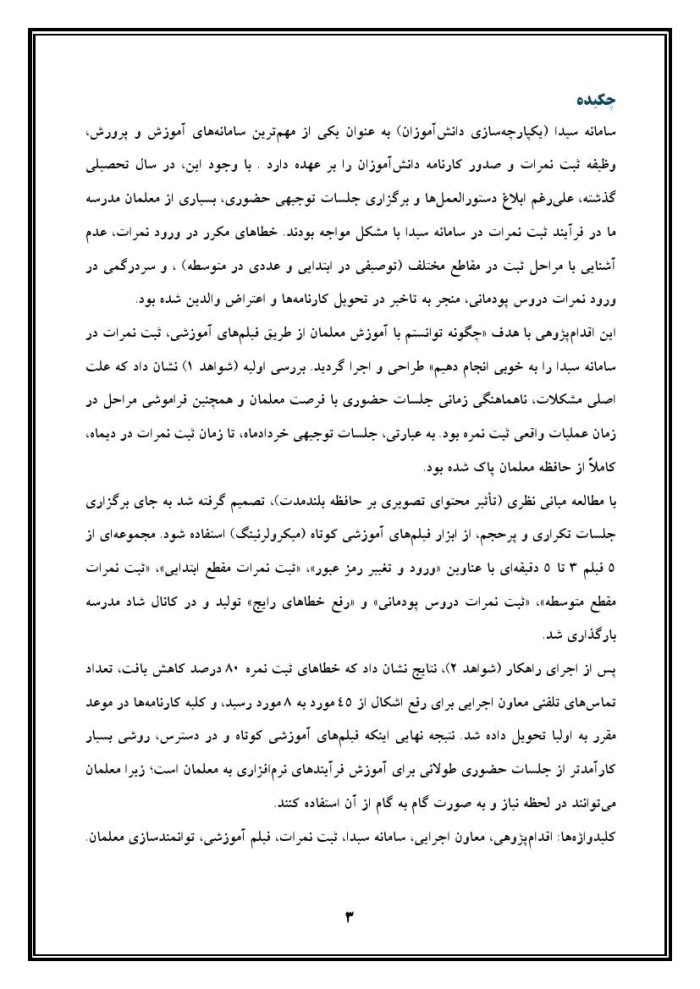 چکیده
سامانه سیدا (یکپارچه‌سازی دانش‌آموزان) به عنوان یکی از مهم‌ترین سامانه‌های آموزش و پرورش،
وظیفه ثبت نمرات و صدور کارنامه دانش‌آموزان را بر عهده دارد . با وجود این، در سال تحصیلی
گذشته، علی‌رغم ابلاغ دستورالعمل‌ها و برگزاری جلسات توجیهی حضوری، بسیاری از معلمان مدرسه
ما در فرآیند ثبت نمرات در سامانه سیدا با مشکل مواجه بودند. خطاهای مکرر در ورود نمرات، عدم
آشنایی با مراحل ثبت در مقاطع مختلف (توصیفی در ابتدایی و عددی در متوسطه) ، و سردرگمی در
ورود نمرات دروس پودمانی، منجر به تاخیر در تحویل کارنامه‌ها و اعتراض والدین شده بود.
این اقدام‌پژوهی با هدف «چگونه توانستم با آموزش معلمان از طریق فیلم‌های آموزشی، ثبت نمرات در
سامانه سیدا را به خوبی انجام دهیم» طراحی و اجرا گردید. بررسی اولیه (شواهد ۱) نشان داد که علت
اصلی مشکلات، ناهماهنگی زمانی جلسات حضوری با فرصت معلمان و همچنین فراموشی مراحل در
زمان عملیات واقعی ثبت نمره بود. به عبارتی، جلسات توجیهی خردادماه، تا زمان ثبت نمرات در دیماه،
کاملاً از حافظه معلمان پاک شده بود.
با مطالعه مبانی نظری (تأثیر محتوای تصویری بر حافظه بلندمدت)، تصمیم گرفته شد به جای برگزاری
جلسات تکراری و پرحجم، از ابزار فیلم‌های آموزشی کوتاه (میکرولرنینگ) استفاده شود. مجموعه‌ای از
۵ فیلم ۳ تا ۵ دقیقه‌ای با عناوین «ورود و تغییر رمز عبور»، «ثبت نمرات مقطع ابتدایی»، «ثبت نمرات
مقطع متوسطه»، «ثبت نمرات دروس پودمانی» و «رفع خطاهای رایج» تولید و در کانال شاد مدرسه
بارگذاری شد.
پس از اجرای راهکار (شواهد ۲)، نتایج نشان داد که خطاهای ثبت نمره ۸۰ درصد کاهش یافت، تعداد
تماس‌های تلفنی معاون اجرایی برای رفع اشکال از ۴۵ مورد به ۸ مورد رسید، و کلیه کارنامه‌ها در موعد
مقرر به اولیا تحویل داده شد. نتیجه نهایی اینکه فیلم‌های آموزشی کوتاه و در دسترس، روشی بسیار
کارآمدتر از جلسات حضوری طولانی برای آموزش فرآیندهای نرم‌افزاری به معلمان است؛ زیرا معلمان
می‌توانند در لحظه نیاز و به صورت گام به گام از آن استفاده کنند.
کلیدواژه‌ها: اقدام‌پژوهی، معاون اجرایی، سامانه سیدا، ثبت نمرات، فیلم آموزشی، توانمندسازی معلمان.
۳